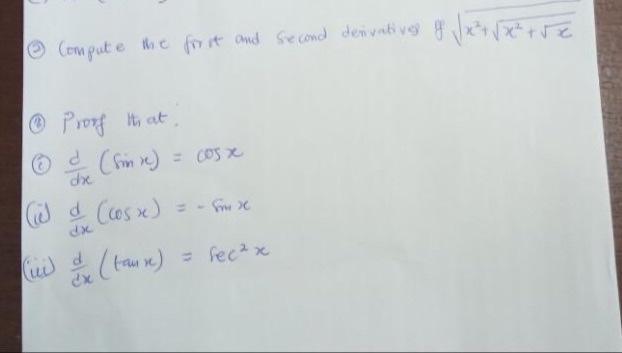 ② Compute the first and second derivatives of √(x²+√(x²+√x))
③ Proof that:
(i) d/dx (sin x) = cos x
(ii) d/dx (cos x) = - sin x
(iii) d/dx (tan x) = sec² x